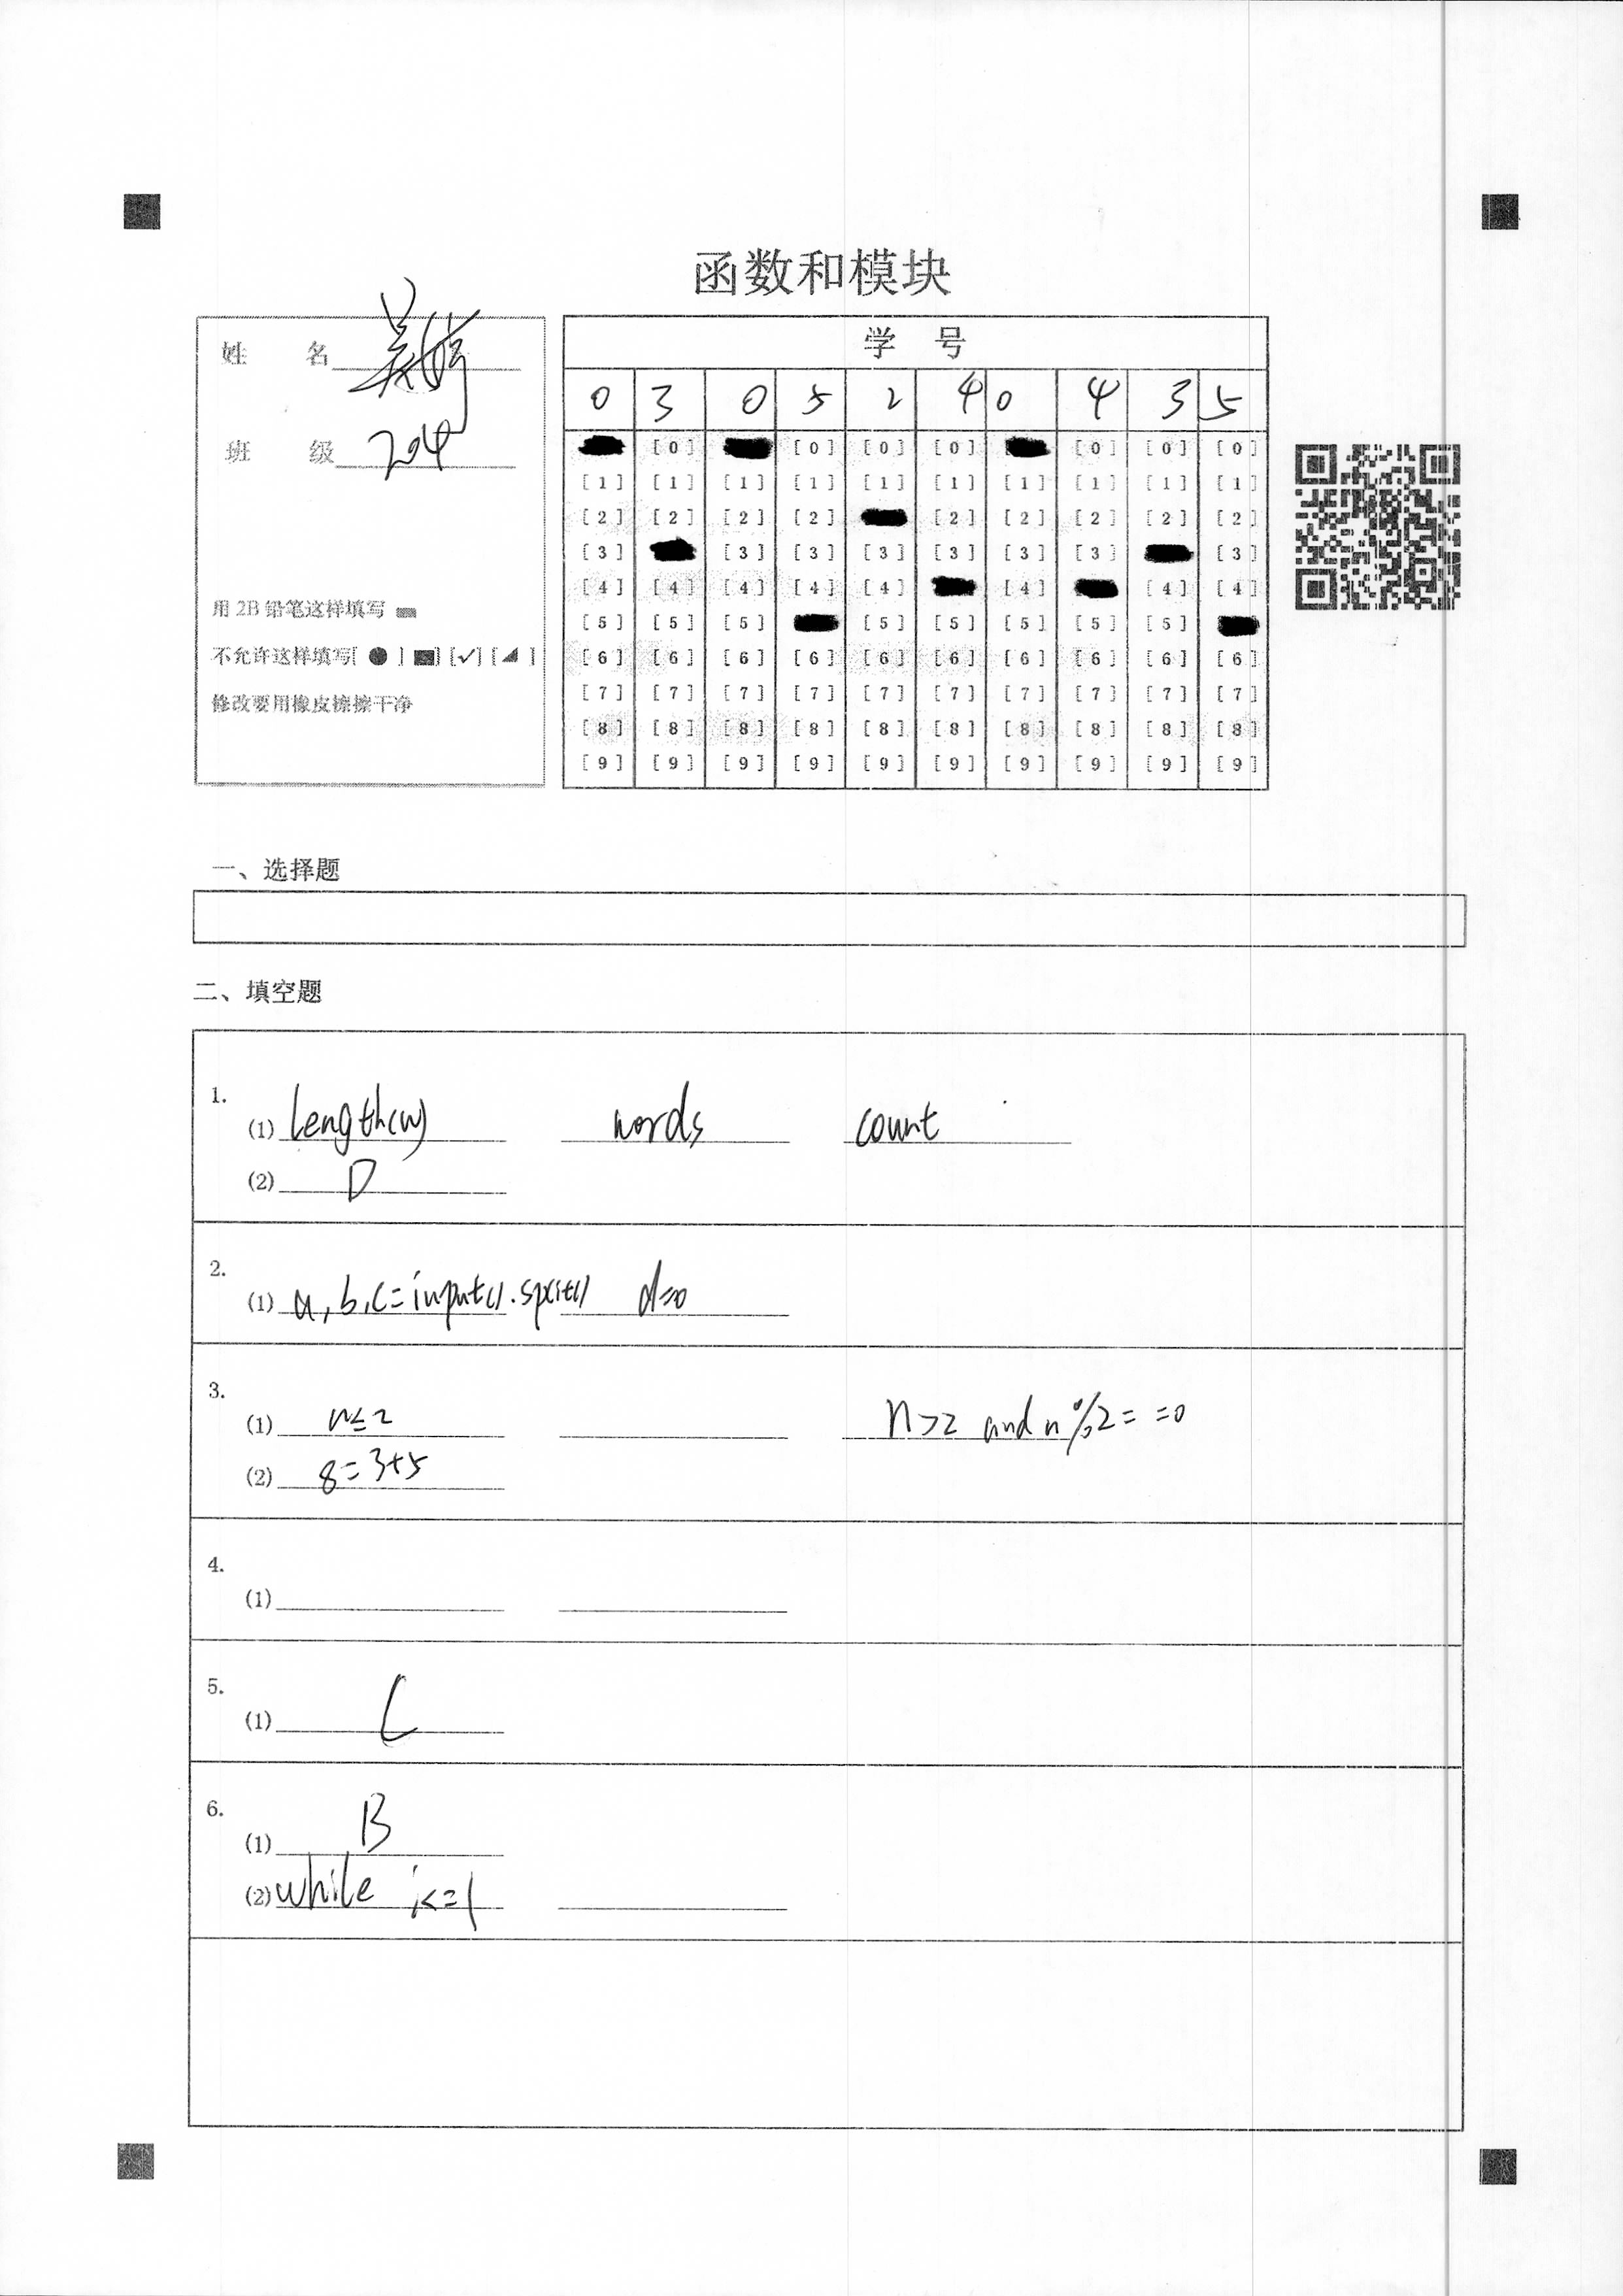 函数和模块
姓 名
班 级 204
用 2B 铅笔这样填写
不允许这样填写[ ● ] [■] [✓] [◢ ]
修改要用橡皮擦擦干净
学 号
0 3 0 5 2 4 0 4 3 5
[0] [0] [0] [0] [0] [0] [0]
[1] [1] [1] [1] [1] [1] [1] [1] [1] [1]
[2] [2] [2] [2] [2] [2] [2] [2] [2]
[3] [3] [3] [3] [3] [3] [3] [3]
[4] [4] [4] [4] [4] [4] [4] [4]
[5] [5] [5] [5] [5] [5] [5] [5]
[6] [6] [6] [6] [6] [6] [6] [6] [6] [6]
[7] [7] [7] [7] [7] [7] [7] [7] [7] [7]
[8] [8] [8] [8] [8] [8] [8] [8] [8] [8]
[9] [9] [9] [9] [9] [9] [9] [9] [9] [9]
一、选择题
二、填空题
1.
(1) length(w) words count
(2) D
2.
(1) a,b,c=input().split() d=0
3.
(1) n≤2 n>2 and n%2==0
(2) 8=3+5
4.
(1)
5.
(1) C
6.
(1) B
(2) while i<=1